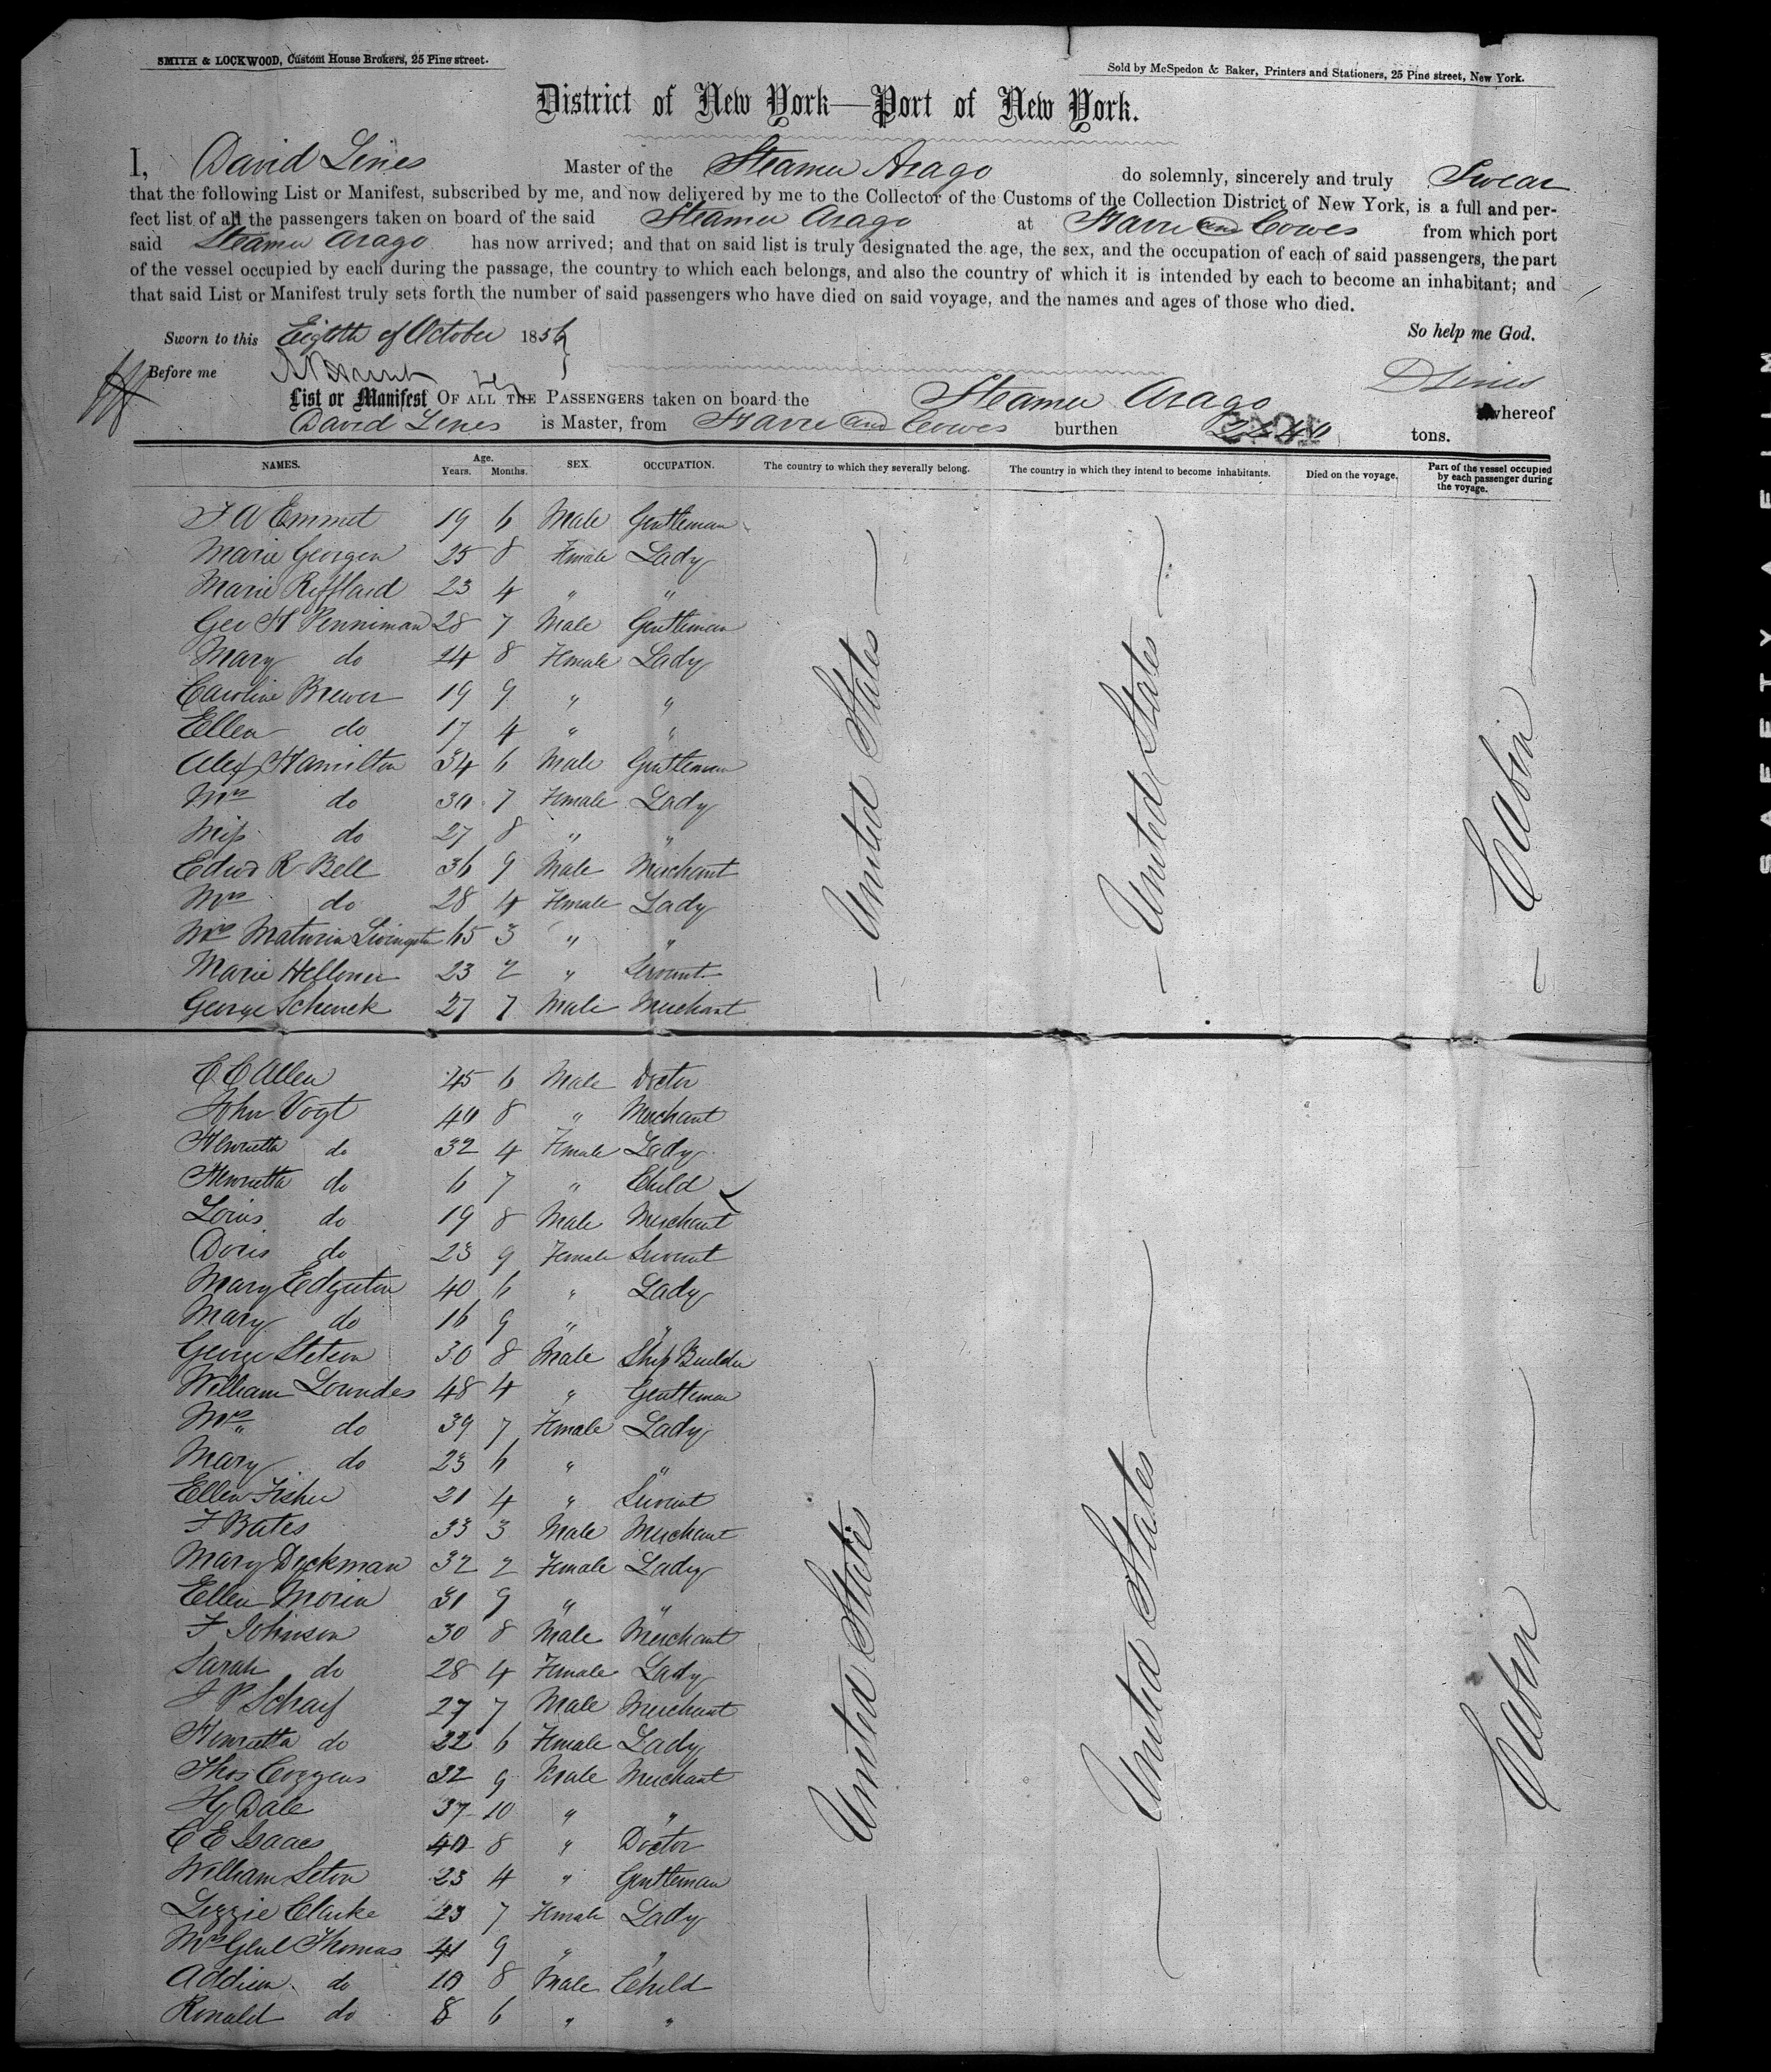 SMITH & LOCKWOOD, Custom House Brokers, 25 Pine street.
Sold by McSpedon & Baker, Printers and Stationers, 25 Pine street, New York.
District of New York—Port of New York.
I, David Lines Master of the Steamer Arago do solemnly, sincerely and truly Swear
that the following List or Manifest, subscribed by me, and now delivered by me to the Collector of the Customs of the Collection District of New York, is a full and per-
fect list of all the passengers taken on board of the said Steamer Arago at Havre and Cowes from which port
said Steamer Arago has now arrived; and that on said list is truly designated the age, the sex, and the occupation of each of said passengers, the part
of the vessel occupied by each during the passage, the country to which each belongs, and also the country of which it is intended by each to become an inhabitant; and
that said List or Manifest truly sets forth the number of said passengers who have died on said voyage, and the names and ages of those who died.
Sworn to this Eighth of October 1856 So help me God.
Before me D Lines
List or Manifest OF ALL THE PASSENGERS taken on board the Steamer Arago whereof
David Lines is Master, from Havre and Cowes burthen 2240 tons.
NAMES. Age. Years. Months. SEX. OCCUPATION. The country to which they severally belong. The country in which they intend to become inhabitants. Died on the voyage. Part of the vessel occupied by each passenger during the voyage.
T W Emmet 19 6 Male Gentleman
Marie Georgen 25 8 Female Lady
Marie Rifflard 23 4 " "
Geo H Penniman 28 7 Male Gentleman
Mary do 24 8 Female Lady
Caroline Brewer 19 9 " "
Ellen do 17 4 " "
Alex Hamilton 34 6 Male Gentleman
Mrs do 30 7 Female Lady
Miss do 27 8 " "
Edwd R Bell 36 9 Male Merchant
Mrs do 28 4 Female Lady
Mrs Maturin Livingston 65 3 " "
Marie 23 2 " Servant
George Schenck 27 7 Male Merchant
United States
United States
Cabin
E C Allen 45 6 Male Doctor
John Vogt 40 8 " Merchant
Henrietta do 32 4 Female Lady
Henrietta do 6 7 " Child
Louis do 19 8 Male Merchant
Doris do 23 9 Female Servant
Mary Edgerton 40 6 " Lady
Mary do 16 9 " "
George Stetson 30 8 Male Ship Builder
William Lowndes 48 4 " Gentleman
Mrs " do 39 7 Female Lady
Mary do 23 6 " "
Ellen Fisher 21 4 " Servant
F Bates 33 3 Male Merchant
Mary Dyckman 32 2 Female Lady
Ellen Morin 31 9 " "
F Johnson 30 8 Male Merchant
Sarah do 28 4 Female Lady
J P Scharf 27 7 Male Merchant
Henrietta do 22 6 Female Lady
Thos Cozzens 32 9 Male Merchant
Hy Dale 37 10 " "
C E Isaacs 40 8 " Doctor
William Seton 23 4 " Gentleman
Lizzie Clarke 23 7 Female Lady
Mrs Genl Thomas 41 9 " "
Addison do 10 8 Male Child
Ronald do 8 6 " "
United States
United States
Cabin